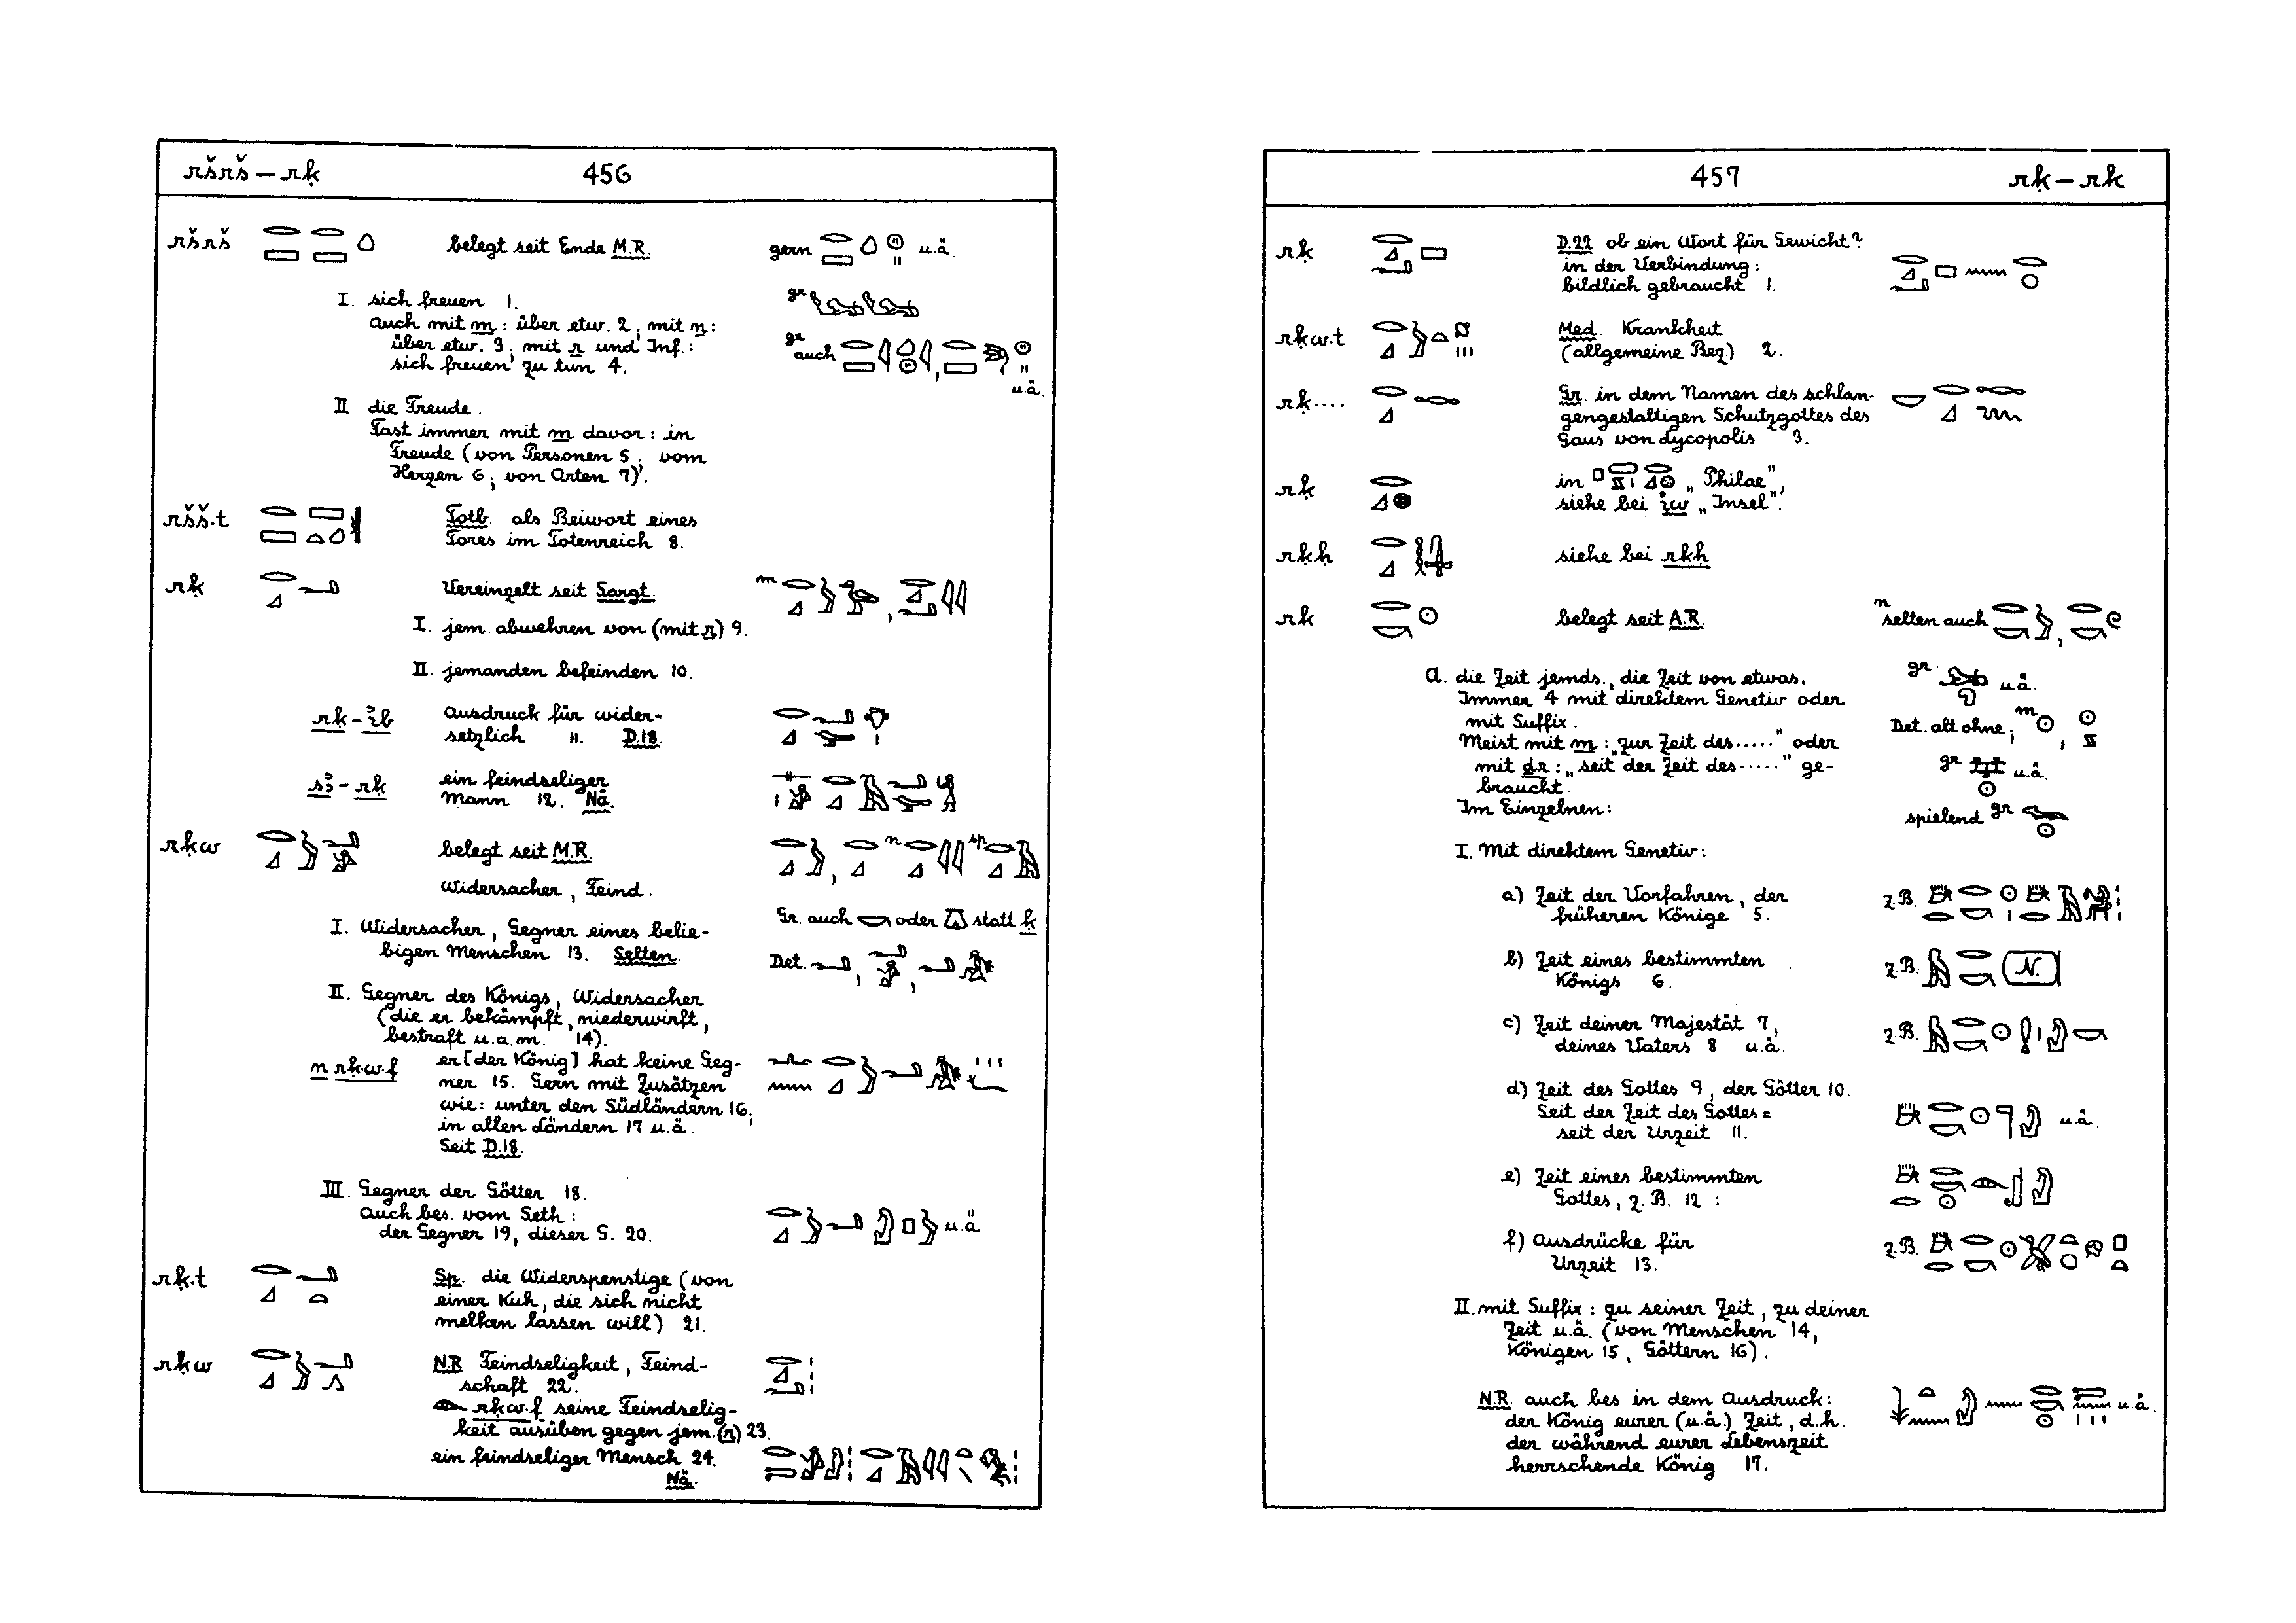 ršrš – rḳ 456
ršrš belegt seit Ende M.R. gern u.ä.
I. sich freuen 1. gr
auch mit m: über etw. 2; mit n:
über etw. 3; mit r und Inf.: gr auch
sich freuen zu tun 4. u.ä.
II. die Freude.
Fast immer mit m davor: in
Freude (von Personen 5; vom
Herzen 6; von Orten 7).
ršš.t Totb. als Beiwort eines
Tores im Totenreich 8.
rḳ Vereinzelt seit Sargt. m
I. jem. abwehren von (mit r) 9.
II. jemanden befeinden 10.
rḳ-ỉb Ausdruck für wider-
setzlich 11. D.18.
sꜣ-rḳ ein feindseliger
Mann 12. Nä.
rḳw belegt seit M.R. n sp
Widersacher, Feind.
Gr. auch oder statt ḳ
I. Widersacher, Gegner eines belie-
bigen Menschen 13. Selten. Det.
II. Gegner des Königs, Widersacher
(die er bekämpft, niederwirft,
bestraft u.a.m. 14).
n rḳw.f er [der König] hat keine Geg-
ner 15. Gern mit Zusätzen
wie: unter den Südländern 16;
in allen Ländern 17 u.ä.
Seit D.18.
III. Gegner der Götter 18.
Auch bes. vom Seth:
der Gegner 19, dieser G. 20. u.ä
rḳ.t Sp. die Widerspenstige (von
einer Kuh, die sich nicht
melken lassen will) 21.
rḳw N.R. Feindseligkeit, Feind-
schaft 22.
rḳw.f seine Feindselig-
keit ausüben gegen jem. (r) 23.
ein feindseliger Mensch 24.
Nä.
457 rḳ – rk
rḳ D.22 ob ein Wort für Gewicht?
in der Verbindung:
bildlich gebraucht 1.
rḳw.t Med. Krankheit
(allgemeine Bez.) 2.
rḳ.... Gr. in dem Namen des schlan-
gengestaltigen Schutzgottes des
Gaus von Lycopolis 3.
rḳ in „Philae",
siehe bei ỉw „Insel".
rḳḥ siehe bei rkḥ
rk belegt seit A.R. n selten auch
A. die Zeit jemds., die Zeit von etwas. gr u.ä.
Immer 4 mit direktem Genetiv oder
mit Suffix. Det. alt ohne; m
Meist mit m: „zur Zeit des....." oder
mit dr: „seit der Zeit des....." ge- gr u.ä.
braucht.
Im Einzelnen: spielend gr
I. Mit direktem Genetiv:
a) Zeit der Vorfahren, der z.B.
früheren Könige 5.
b) Zeit eines bestimmten z.B. N.
Königs 6.
c) Zeit deiner Majestät 7, z.B.
deines Vaters 8 u.ä.
d) Zeit des Gottes 9, der Götter 10.
Seit der Zeit des Gottes = u.ä.
seit der Urzeit 11.
e) Zeit eines bestimmten
Gottes, z.B. 12 :
f) Ausdrücke für z.B.
Urzeit 13.
II. mit Suffix: zu seiner Zeit, zu deiner
Zeit u.ä. (von Menschen 14,
Königen 15, Göttern 16).
N.R. auch bes in dem Ausdruck:
der König eurer (u.ä.) Zeit, d.h. u.ä.
der während eurer Lebenszeit
herrschende König 17.